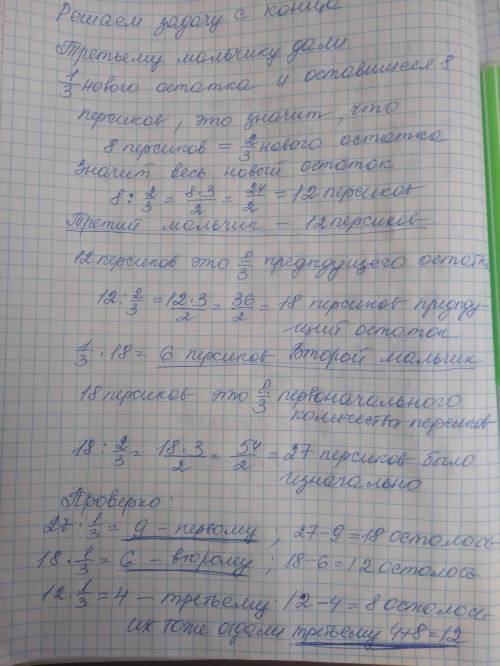 Решаем задачу с конца
Третьему мальчику дали
1/3 нового остатка и оставшиеся 8
персиков, это значит, что
8 персиков = 2/3 нового остатка
значит весь новый остаток
8 : 2/3 = 8·3/2 = 24/2 = 12 персиков
Третий мальчик – 12 персиков
12 персиков это 2/3 предыдущего остатка
12 : 2/3 = 12·3/2 = 36/2 = 18 персиков преды-
щий остаток
1/3 · 18 = 6 персиков Второй мальчик
18 персиков это 2/3 первоначального
количества персиков
18 : 2/3 = 18·3/2 = 54/2 = 27 персиков было
изначально
Проверка:
27 · 1/3 = 9 – первому ; 27-9=18 осталось
18 · 1/3 = 6 – второму ; 18-6=12 осталось
12 · 1/3 = 4 – третьему 12-4=8 осталось
их тоже отдали третьему 4+8=12